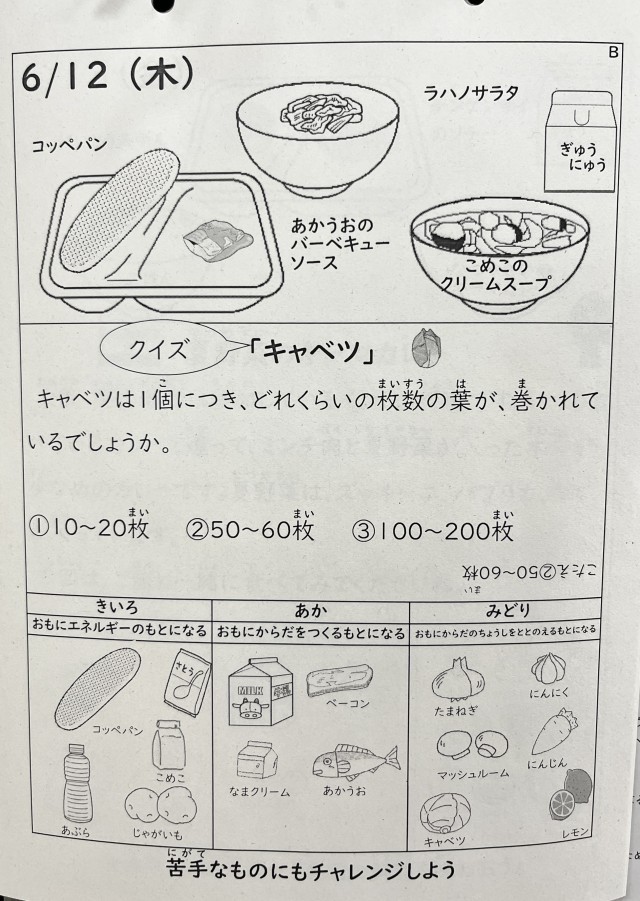 B
6/12（木）
ラハノサラタ
コッペパン
ぎゅう
にゅう
あかうおの
バーベキュー
ソース
こめこの
クリームスープ
クイズ
「キャベツ」
キャベツは1個につき、どれくらいの枚数の葉が、巻かれて
いるでしょうか。
①10～20枚 ②50～60枚 ③100～200枚
こたえ②50～60枚
きいろ あか みどり
おもにエネルギーのもとになる おもにからだをつくるもとになる おもにからだのちょうしをととのえるもとになる
コッペパン
さとう
こめこ
あぶら
じゃがいも
MILK
ベーコン
なまクリーム
あかうお
たまねぎ
にんにく
マッシュルーム
にんじん
キャベツ
レモン
苦手なものにもチャレンジしよう